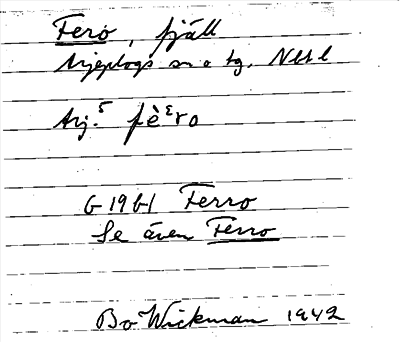 Ferò, fjäll
Arjeplogs sn o tg. Nbtl
Arj. 5 fèᵋro
G 19 b1 Ferro
Se även Ferro
Bo Wickman 1942